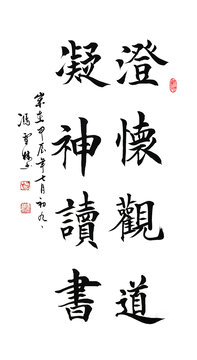 澄懷觀道
凝神讀書
甲辰年七月初九